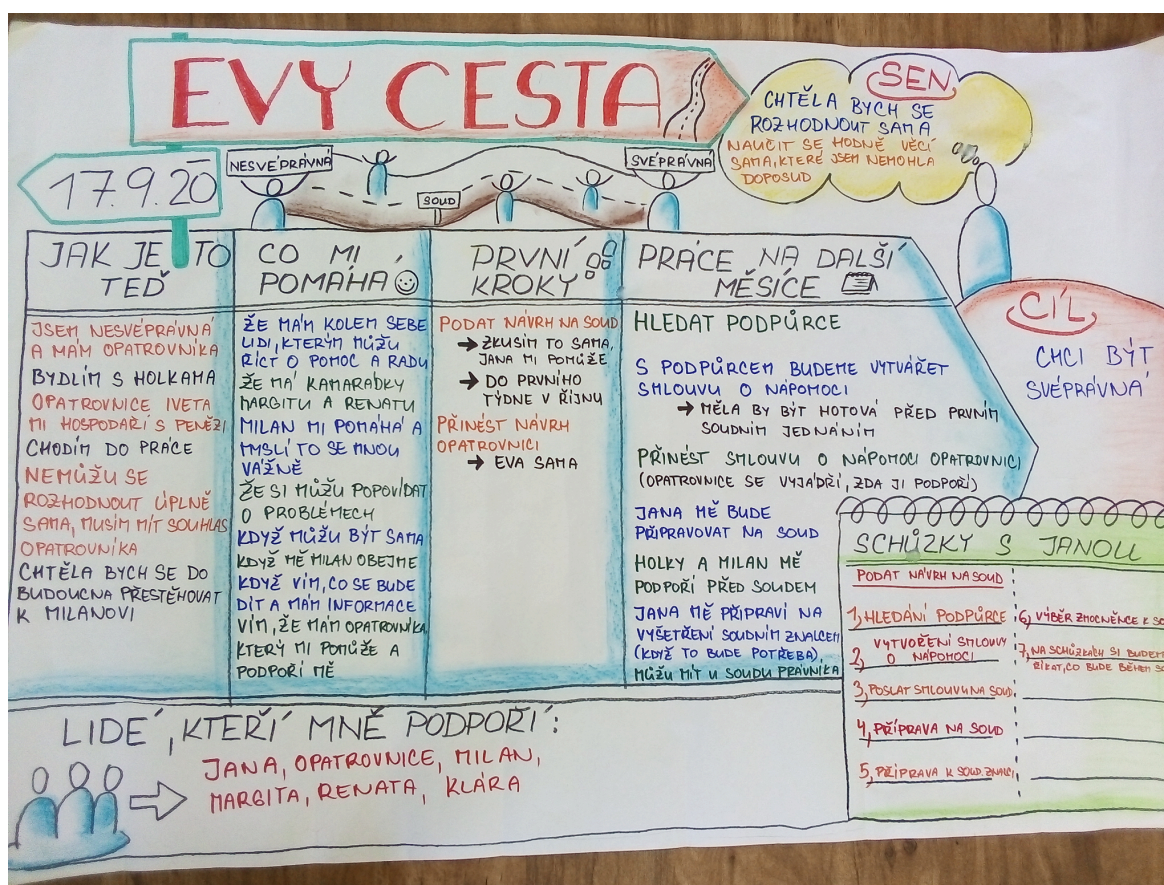 EVY CESTA
SEN
CHTĚLA BYCH SE
ROZHODNOUT SAMA
NAUČIT SE HODNĚ VĚCÍ
SAMA, KTERÉ JSEM NEMOHLA
DOPOSUD
17.9.20
NESVÉPRÁVNÁ
SOUD
SVÉPRÁVNÁ
JAK JE TO
TEĎ
JSEM NESVÉPRÁVNÁ
A MÁM OPATROVNÍKA
BYDLÍM S HOLKAMA
OPATROVNICE IVETA
MI HOSPODAŘÍ S PENĚZI
CHODÍM DO PRÁCE
NEMŮŽU SE
ROZHODNOUT ÚPLNĚ
SAMA, MUSÍM MÍT SOUHLAS
OPATROVNÍKA
CHTĚLA BYCH SE DO
BUDOUCNA PŘESTĚHOVAT
K MILANOVI
CO MI
POMÁHÁ
ŽE MÁM KOLEM SEBE
LIDI, KTERÝM MŮŽU
ŘÍCT O POMOC A RADU
ŽE MÁ KAMARÁDKY
MARGITU A RENATU
MILAN MI POMÁHÁ A
MYSLÍ TO SE MNOU
VÁŽNĚ
ŽE SI MŮŽU POPOVÍDAT
O PROBLÉMECH
KDYŽ MŮŽU BÝT SAMA
KDYŽ MĚ MILAN OBEJME
KDYŽ VÍM, CO SE BUDE
DÍT A MÁM INFORMACE
VÍM, ŽE MÁM OPATROVNÍKA
KTERÝ MI POMŮŽE A
PODPOŘÍ MĚ
PRVNÍ
KROKY
PODAT NÁVRH NA SOUD
→ ZKUSÍM TO SAMA,
JANA MI POMŮŽE
→ DO PRVNÍHO
TÝDNE V ŘÍJNU
PŘINÉST NÁVRH
OPATROVNICI
→ EVA SAMA
PRÁCE NA DALŠÍ
MĚSÍCE
HLEDAT PODPŮRCE
S PODPŮRCEM BUDEME VYTVÁŘET
SMLOUVU O NÁPOMOCI
→ MĚLA BY BÝT HOTOVÁ PŘED PRVNÍM
SOUDNÍM JEDNÁNÍM
PŘINÉST SMLOUVU O NÁPOMOCI OPATROVNICI
(OPATROVNICE SE VYJÁDŘÍ, ZDA JI PODPOŘÍ)
JANA MĚ BUDE
PŘIPRAVOVAT NA SOUD
HOLKY A MILAN MĚ
PODPOŘÍ PŘED SOUDEM
JANA MĚ PŘIPRAVÍ NA
VYŠETŘENÍ SOUDNÍM ZNALCEM
(KDYŽ TO BUDE POTŘEBA)
MŮŽU MÍT U SOUDU PRÁVNÍKA
CÍL
CHCI BÝT
SVÉPRÁVNÁ
SCHŮZKY S JANOU
PODAT NÁVRH NA SOUD
1, HLEDÁNÍ PODPŮRCE
2, VYTVOŘENÍ SMLOUVY
O NÁPOMOCI
3, POSLAT SMLOUVU NA SOUD
4, PŘÍPRAVA NA SOUD
5, PŘÍPRAVA K SOUD. ZNALCI
6, VÝBĚR ZMOCNĚNCE K
7, NA SCHŮZKÁCH SI BUDEM
ŘÍKAT, CO BUDE BĚHEM
LIDÉ, KTEŘÍ MNĚ PODPOŘÍ:
JANA, OPATROVNICE, MILAN,
MARGITA, RENATA, KLÁRA